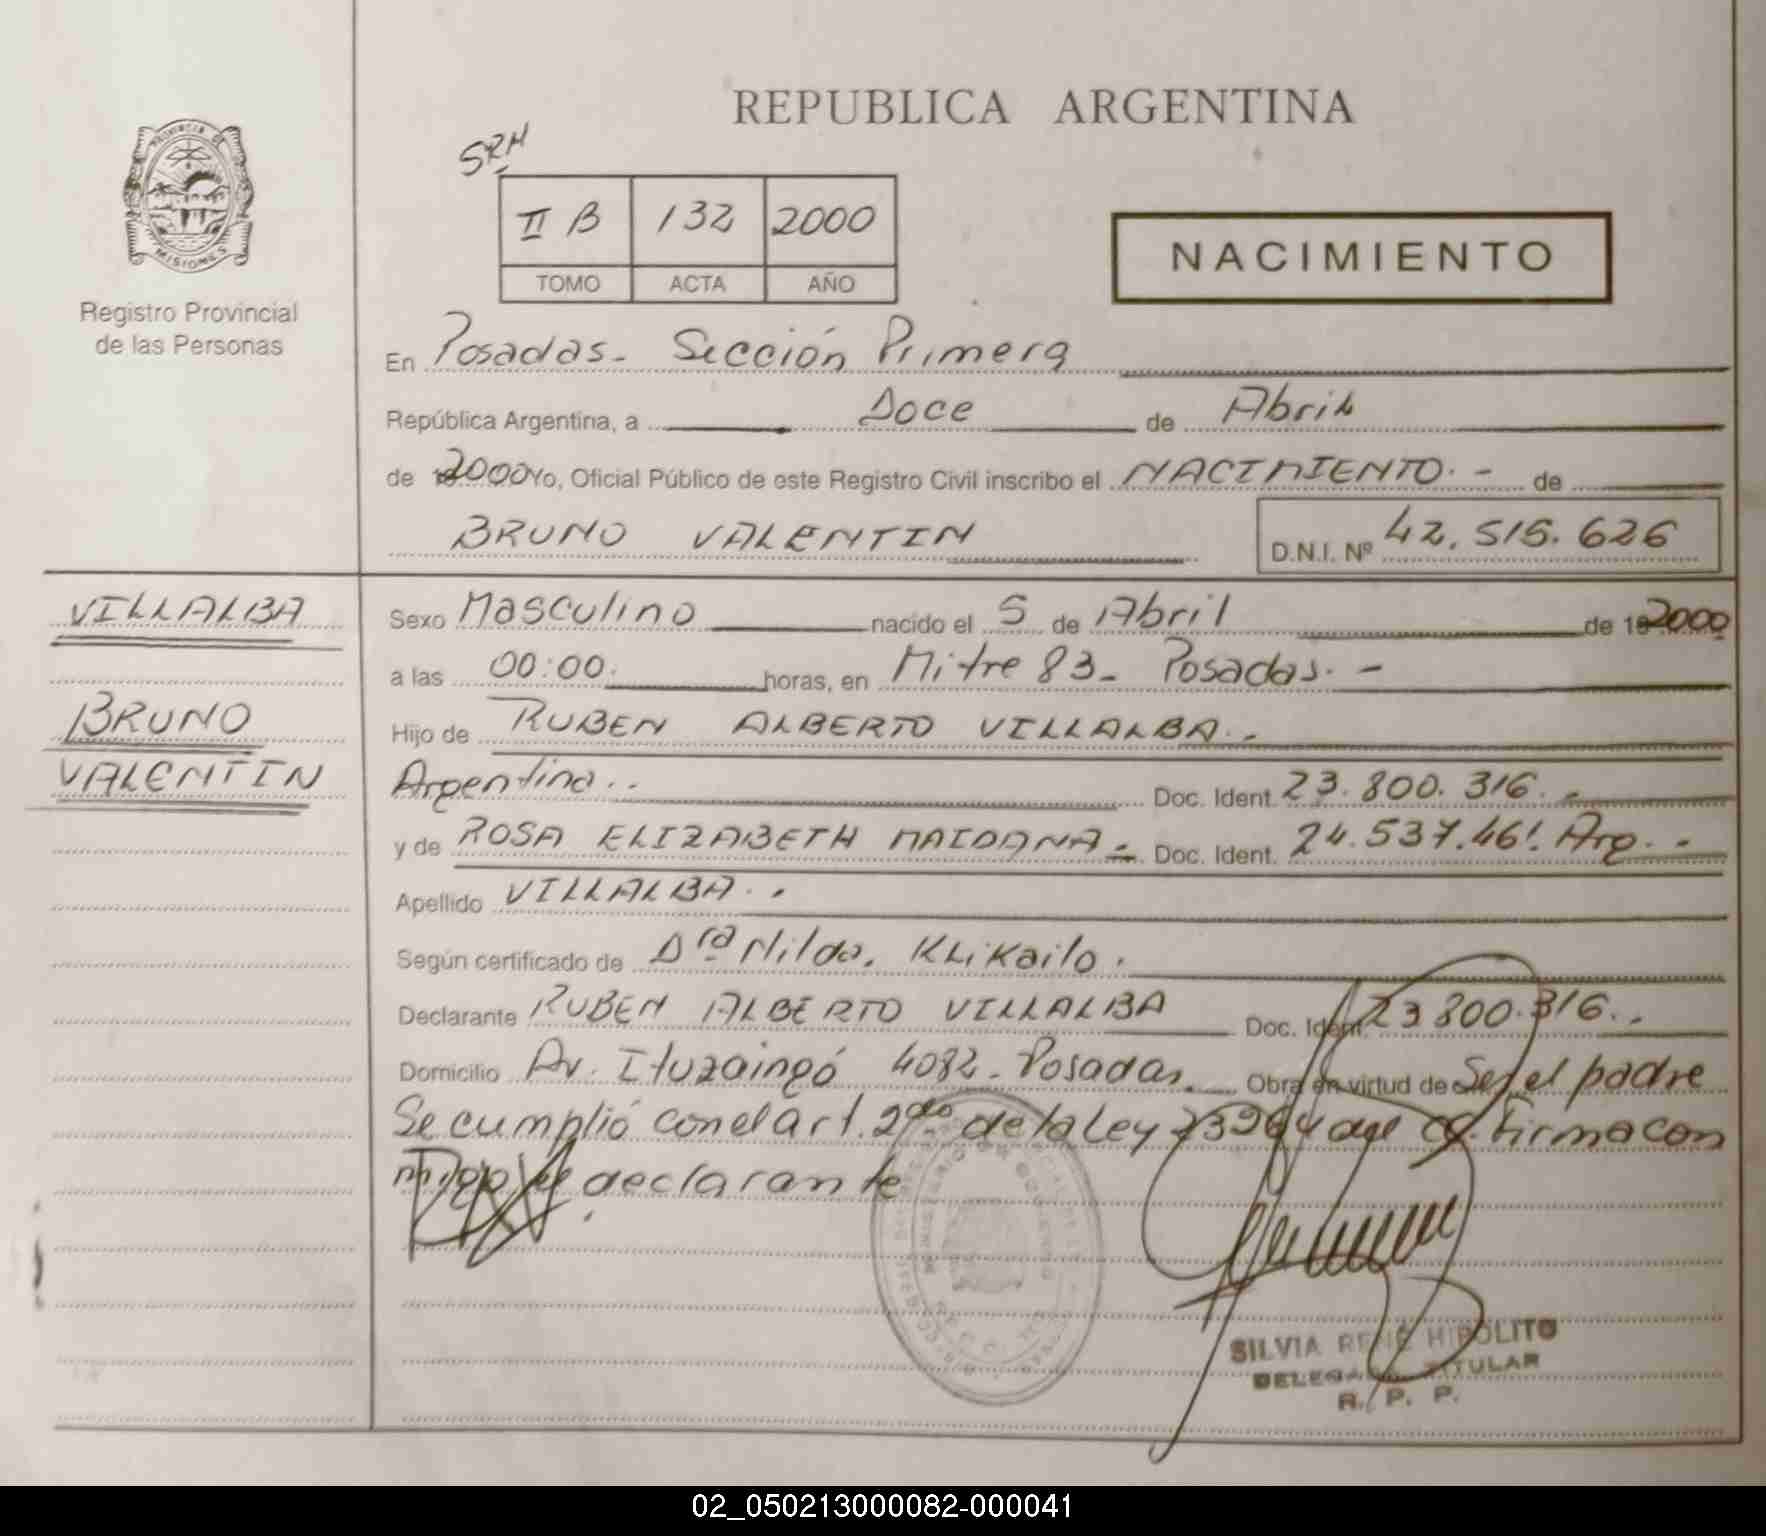 REPUBLICA ARGENTINA
PROVINCIA DE
MISIONES
Registro Provincial
de las Personas
SRH
II B 132 2000
TOMO ACTA AÑO
NACIMIENTO
En Posadas - Sección Primera
República Argentina, a Doce de Abril
de 2000 Yo, Oficial Público de este Registro Civil inscribo el NACIMIENTO. - de
BRUNO VALENTIN D.N.I. Nº 42.515.626
VILLALBA
BRUNO
VALENTIN
Sexo Masculino nacido el 5 de Abril de 19 2000
a las 00:00. horas, en Mitre 83 - Posadas. -
Hijo de RUBEN ALBERTO VILLALBA. -
Argentino. - Doc. Ident. 23.800.316. -
y de ROSA ELIZABETH MAIDANA. - Doc. Ident. 24.537.461 Arg. -
Apellido VILLALBA. -
Según certificado de Dra Nilda. Klikailo.
Declarante RUBEN ALBERTO VILLALBA Doc. Ident. 23 800.316. -
Domicilio Av. Ituzaingó 4082 - Posadas. Obra en virtud de Ser el padre
Se cumplió con el art. 2do de la Ley 23264 del CC. Firma con
migo el declarante
SILVIA RENÉ HIPÓLITO
DELEGADA TITULAR
R. P. P.
02_050213000082-000041